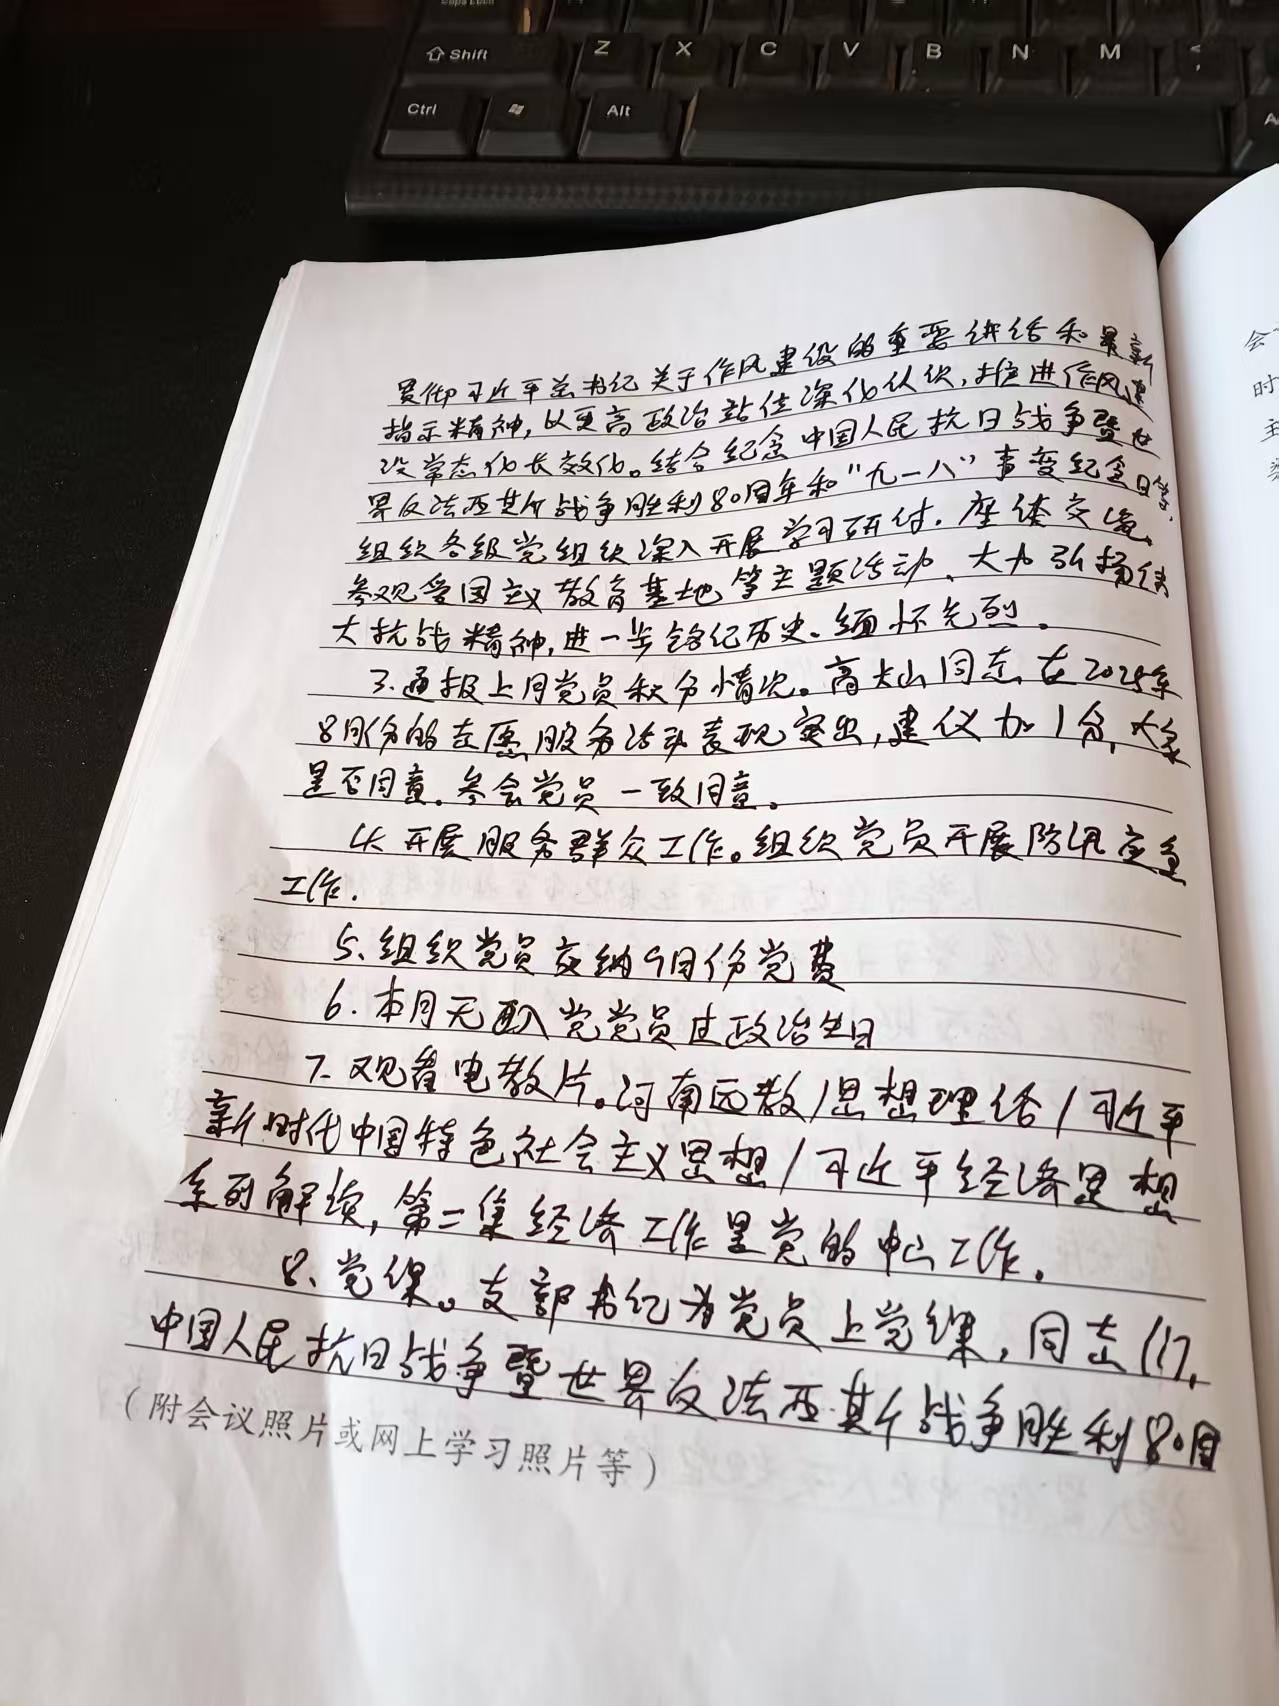 Caps Lock
Shift Z X C V B N M <
Ctrl Alt
贯彻习近平总书记关于作风建设的重要讲话和最新
指示精神，以更高政治站位深化认识，推进作风建
设常态化长效化。结合纪念中国人民抗日战争暨世
界反法西斯战争胜利80周年和“九一八”事变纪念日等，
组织各级党组织深入开展学习研讨、座谈交流、
参观爱国主义教育基地等主题活动、大力弘扬伟
大抗战精神，进一步铭记历史、缅怀先烈。
3、通报上月党员积分情况。高大山同志在2025年
8月份的志愿服务活动表现突出，建议加1分，大家
是否同意。参会党员一致同意。
4、开展服务群众工作。组织党员开展防汛应急
工作.
5、组织党员交纳9月份党费
6.本月无入党党员过政治生日
7、观看电教片。河南远教/思想理论/习近平
新时代中国特色社会主义思想/习近平经济思想
系列解读，第二集经济工作是党的中心工作.
8、党课。支部书记为党员上党课，同志们，
中国人民抗日战争暨世界反法西斯战争胜利80周
（附会议照片或网上学习照片等）
会
时